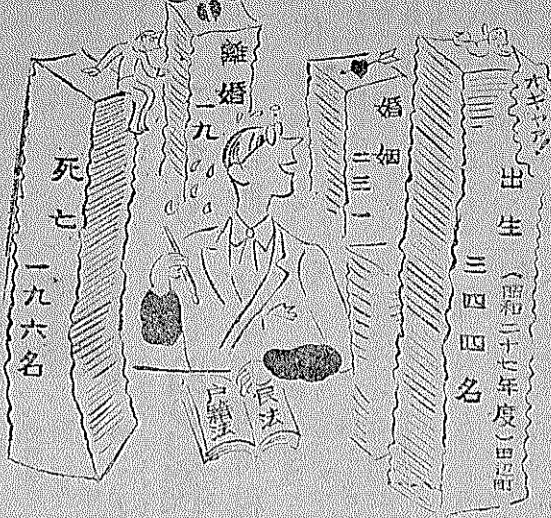 オギャア!
出生(昭和二十七年度)田辺町
三四四名
婚姻
二三一
離婚
一九
死亡
一九六名
民法
戸籍法